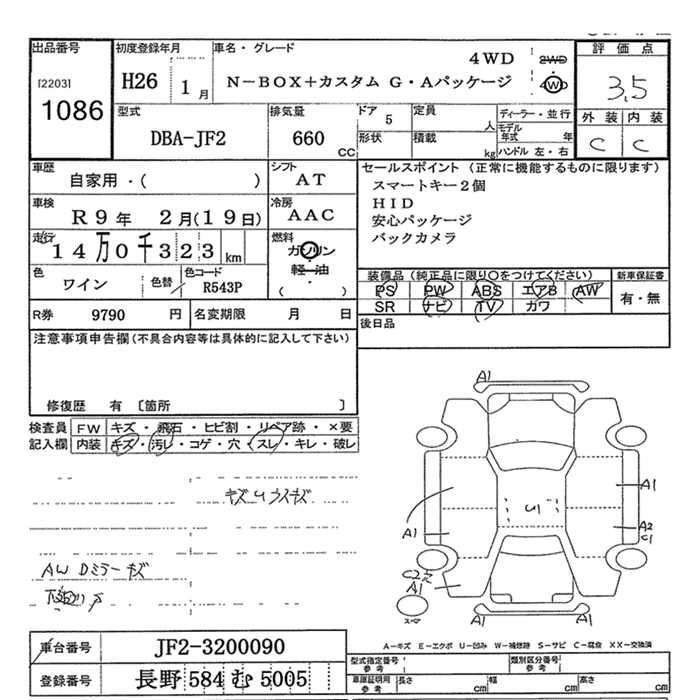 出品番号
[2203]
1086
初度登録年月
H26 1月
車名・グレード
4WD 2WD
N-BOX+カスタム G・Aパッケージ 4WD
評価点
3,5
外装 内装
C C
型式
DBA-JF2
排気量
660 CC
ドア 5
定員 人
ディーラー・並行
モデル年式 年
形状
積載 kg
ハンドル 左・右
車歴
自家用・( )
シフト
AT
車検
R9年 2月(19日)
冷房
AAC
走行
14万0千323 km
燃料
ガソリン・軽油・
( )
色
ワイン
色替
色コード
R543P
セールスポイント(正常に機能するものに限ります)
スマートキー2個
HID
安心パッケージ
バックカメラ
装備品(純正品に限り○をつけてください)
PS PW ABS エアB AW
SR ナビ TV カワ
新車保証書
有・無
後日品
R券 9790 円
名変期限 月 日
注意事項申告欄(不具合内容等は具体的に記入して下さい)
修復歴 有 〔箇所 〕
検査員記入欄
FW キズ・飛石・ヒビ割・リペア跡・×要
内装 キズ・汚レ・コゲ・穴・スレ・キレ・破レ
キズUラスキズ
AW Dミラーキズ
A1
A1
A2
C1
U1
A1
C2
A1
A1
スーマ
車台番号
JF2-3200090
登録番号
長野 584 む 5005
A-キズ E-エクボ U-凹み W-補修跡 S-サビ C-腐食 XX-交換済
型式指定番号
参考
類別区分番号
参考
車庫証明用
参考
長さ cm
幅 cm
高さ cm